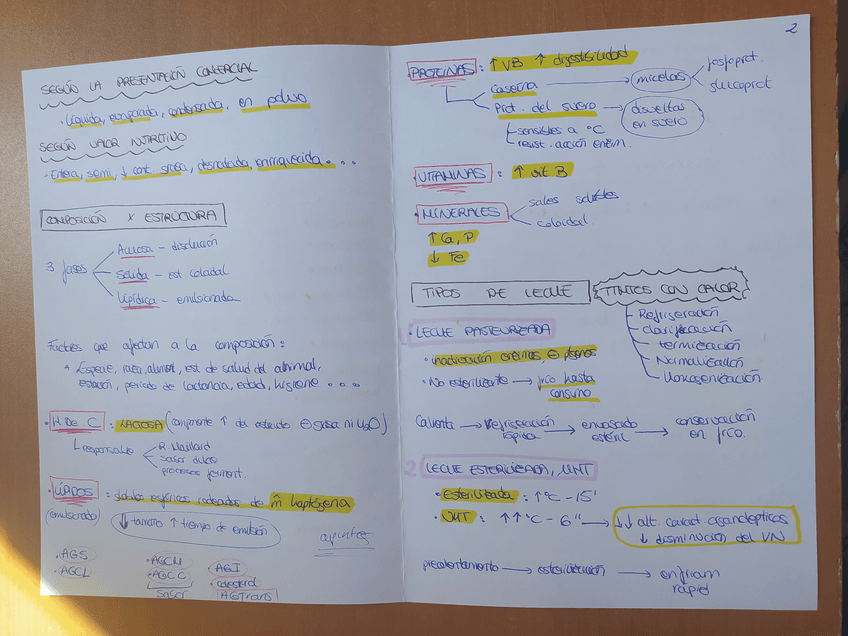 SEGÚN LA PRESENTACIÓN COMERCIAL
· Líquida, evaporada, condensada, en polvo
SEGÚN VALOR NUTRITIVO
· Entera, semi, ↓ cont. grasa, desnatada, enriquecida...
COMPOSICIÓN Y ESTRUCTURA
3 fases
Acuosa – disolución
Sólida – est coloidal
Lipídica – emulsionada
Factores que afectan a la composición:
* Especie, raza, alimen, est de salud del animal,
estación, periodo de lactancia, edad, higiene ...
· H de C : LACTOSA (componente ↑ del extracto ⊖ grasa ni H2O)
responsable
R. Maillard
sabor dulce
procesos ferment.
· LÍPIDOS : glóbulos esféricos rodeados de m̂ haptógena
(emulsionado)
↓ tamaño ↑ tiempo de emulsión
apuntes
· AGS
· AGCL
· AGCM
· AGCC
sabor
· AGI
· colesterol
AGTrans
2
PROTEÍNAS : ↑ VB ↑ digestibilidad
caseína → micelas
fosfoprot.
glucoprot
Prot. del suero → disueltas
en suero
sensibles a °C
resist. acción enzim.
· VITAMINAS : ↑ vit B
· MINERALES
sales solubles
coloidal
↑ Ca, P
↓ Fe
TIPOS DE LECHE
TTMTOS CON CALOR
Refrigeración
Clarificación
termización
Normalización
Homogenización
1 LECHE PASTEURIZADA
· inactivación enzimas, ⊖ patógenos
· No esterilizante → frío hasta
consumo
Calienta → Refrigeración
rápida → envasado
estéril → conservación
en frío.
2 LECHE ESTERILIZADA, UHT
· Esterilizada : ↑ °C – 15'
· UHT : ↑↑ °C – 6'' → ↓↓ alt. caract. organolépticas
↓ disminución del VN
precalentamiento → esterilización → enfriam
rápid